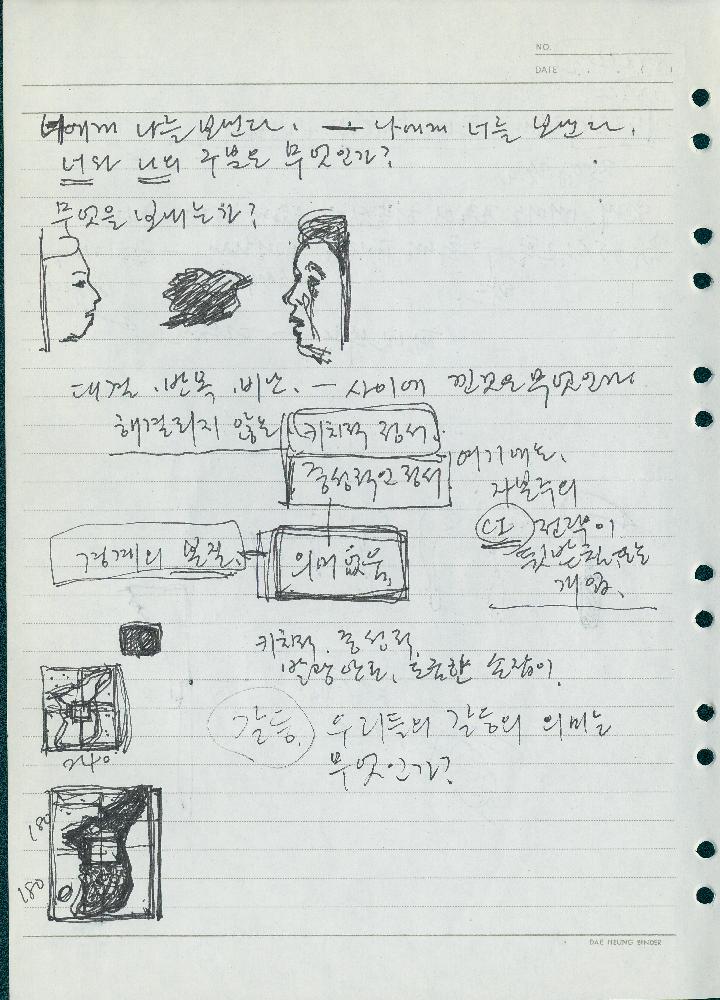 NO.
DATE . . ( )
너에게 나를 보낸다. — 나에게 너를 보낸다.
너와 나의 구분은 무엇인가?
무엇을 보내는가?
대결. 반목. 비난. — 사이에 낀것은 무엇인가
해결되지 않는 키치적 정서.
중성적인 정서 여기에는.
자본주의
CI 전략이
뒷받침되는
개입.
경계의 본질. 의미 없음.
키치적. 중성적.
발광 안료. 조롱한 손장이.
갈등. 우리들의 갈등의 의미는
무엇인가?
240
180
180
DAE HEUNG BINDER